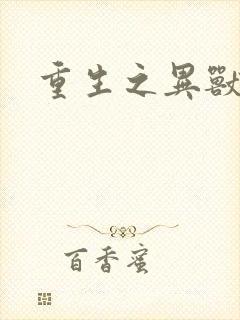 重生之異獸
百香蜜